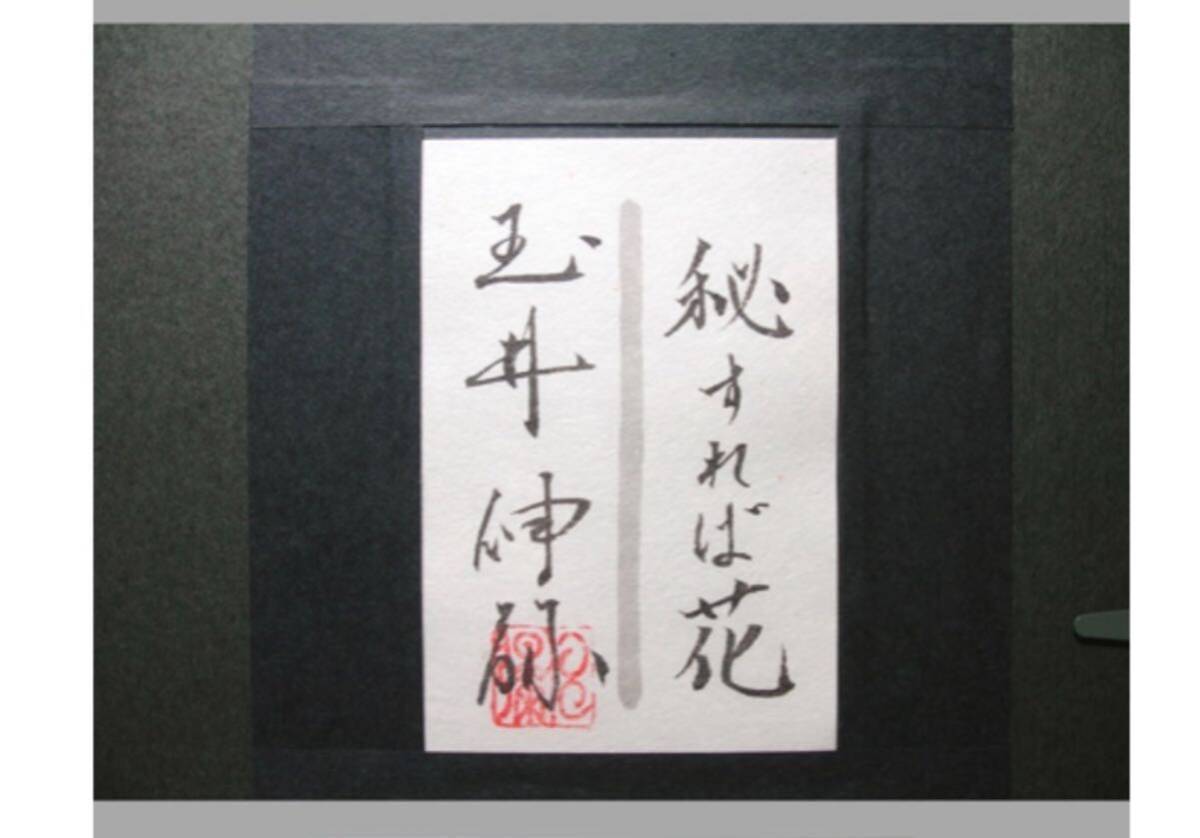 秘すれば花
玉井伸